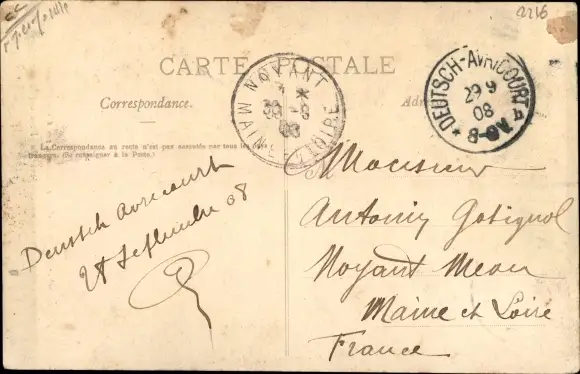 2216
CARTE POSTALE
Correspondance.
NOYANT
MAINE ET LOIRE
DEUTSCH-AVRICOURT
29 9
08
La Correspondance au recto n'est pas acceptée par tous les pays
étrangers. (Se renseigner à la Poste.)
Deutsch Avricourt
Septembre 08
Monsieur
Antonin Gatignol
Noyant Meon
Maine et Loire
France